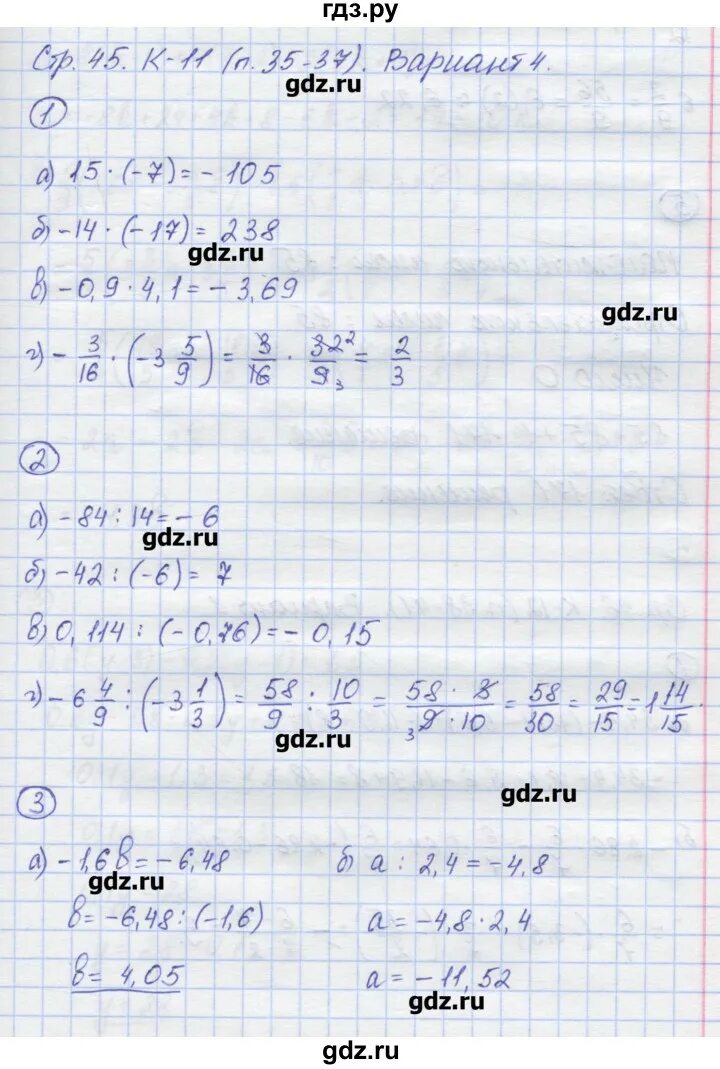 гдз.ру
Стр. 45. К-11 (п. 35-37). Вариант 4.
gdz.ru
1
а) 15 · (-7) = - 105
б) -14 · (-17) = 238
gdz.ru
в) -0,9 · 4,1 = - 3,69
gdz.ru
г) - 3/16 · (-3 5/9) = 3/16 · 32²/9₃ = 2/3
2
а) -84 : 14 = - 6
gdz.ru
б) -42 : (-6) = 7
в) 0,114 : (-0,76) = - 0,15
г) -6 4/9 : (-3 1/3) = 58/9 : 10/3 = 58 · 3/₃9 · 10 = 58/30 = 29/15 = 1 14/15.
gdz.ru
gdz.ru
3
а) -1,6в = -6,48 б) а : 2,4 = -4,8
gdz.ru
в = -6,48 : (-1,6) а = -4,8 · 2,4
в = 4,05 а = - 11,52
gdz.ru
gdz.ru